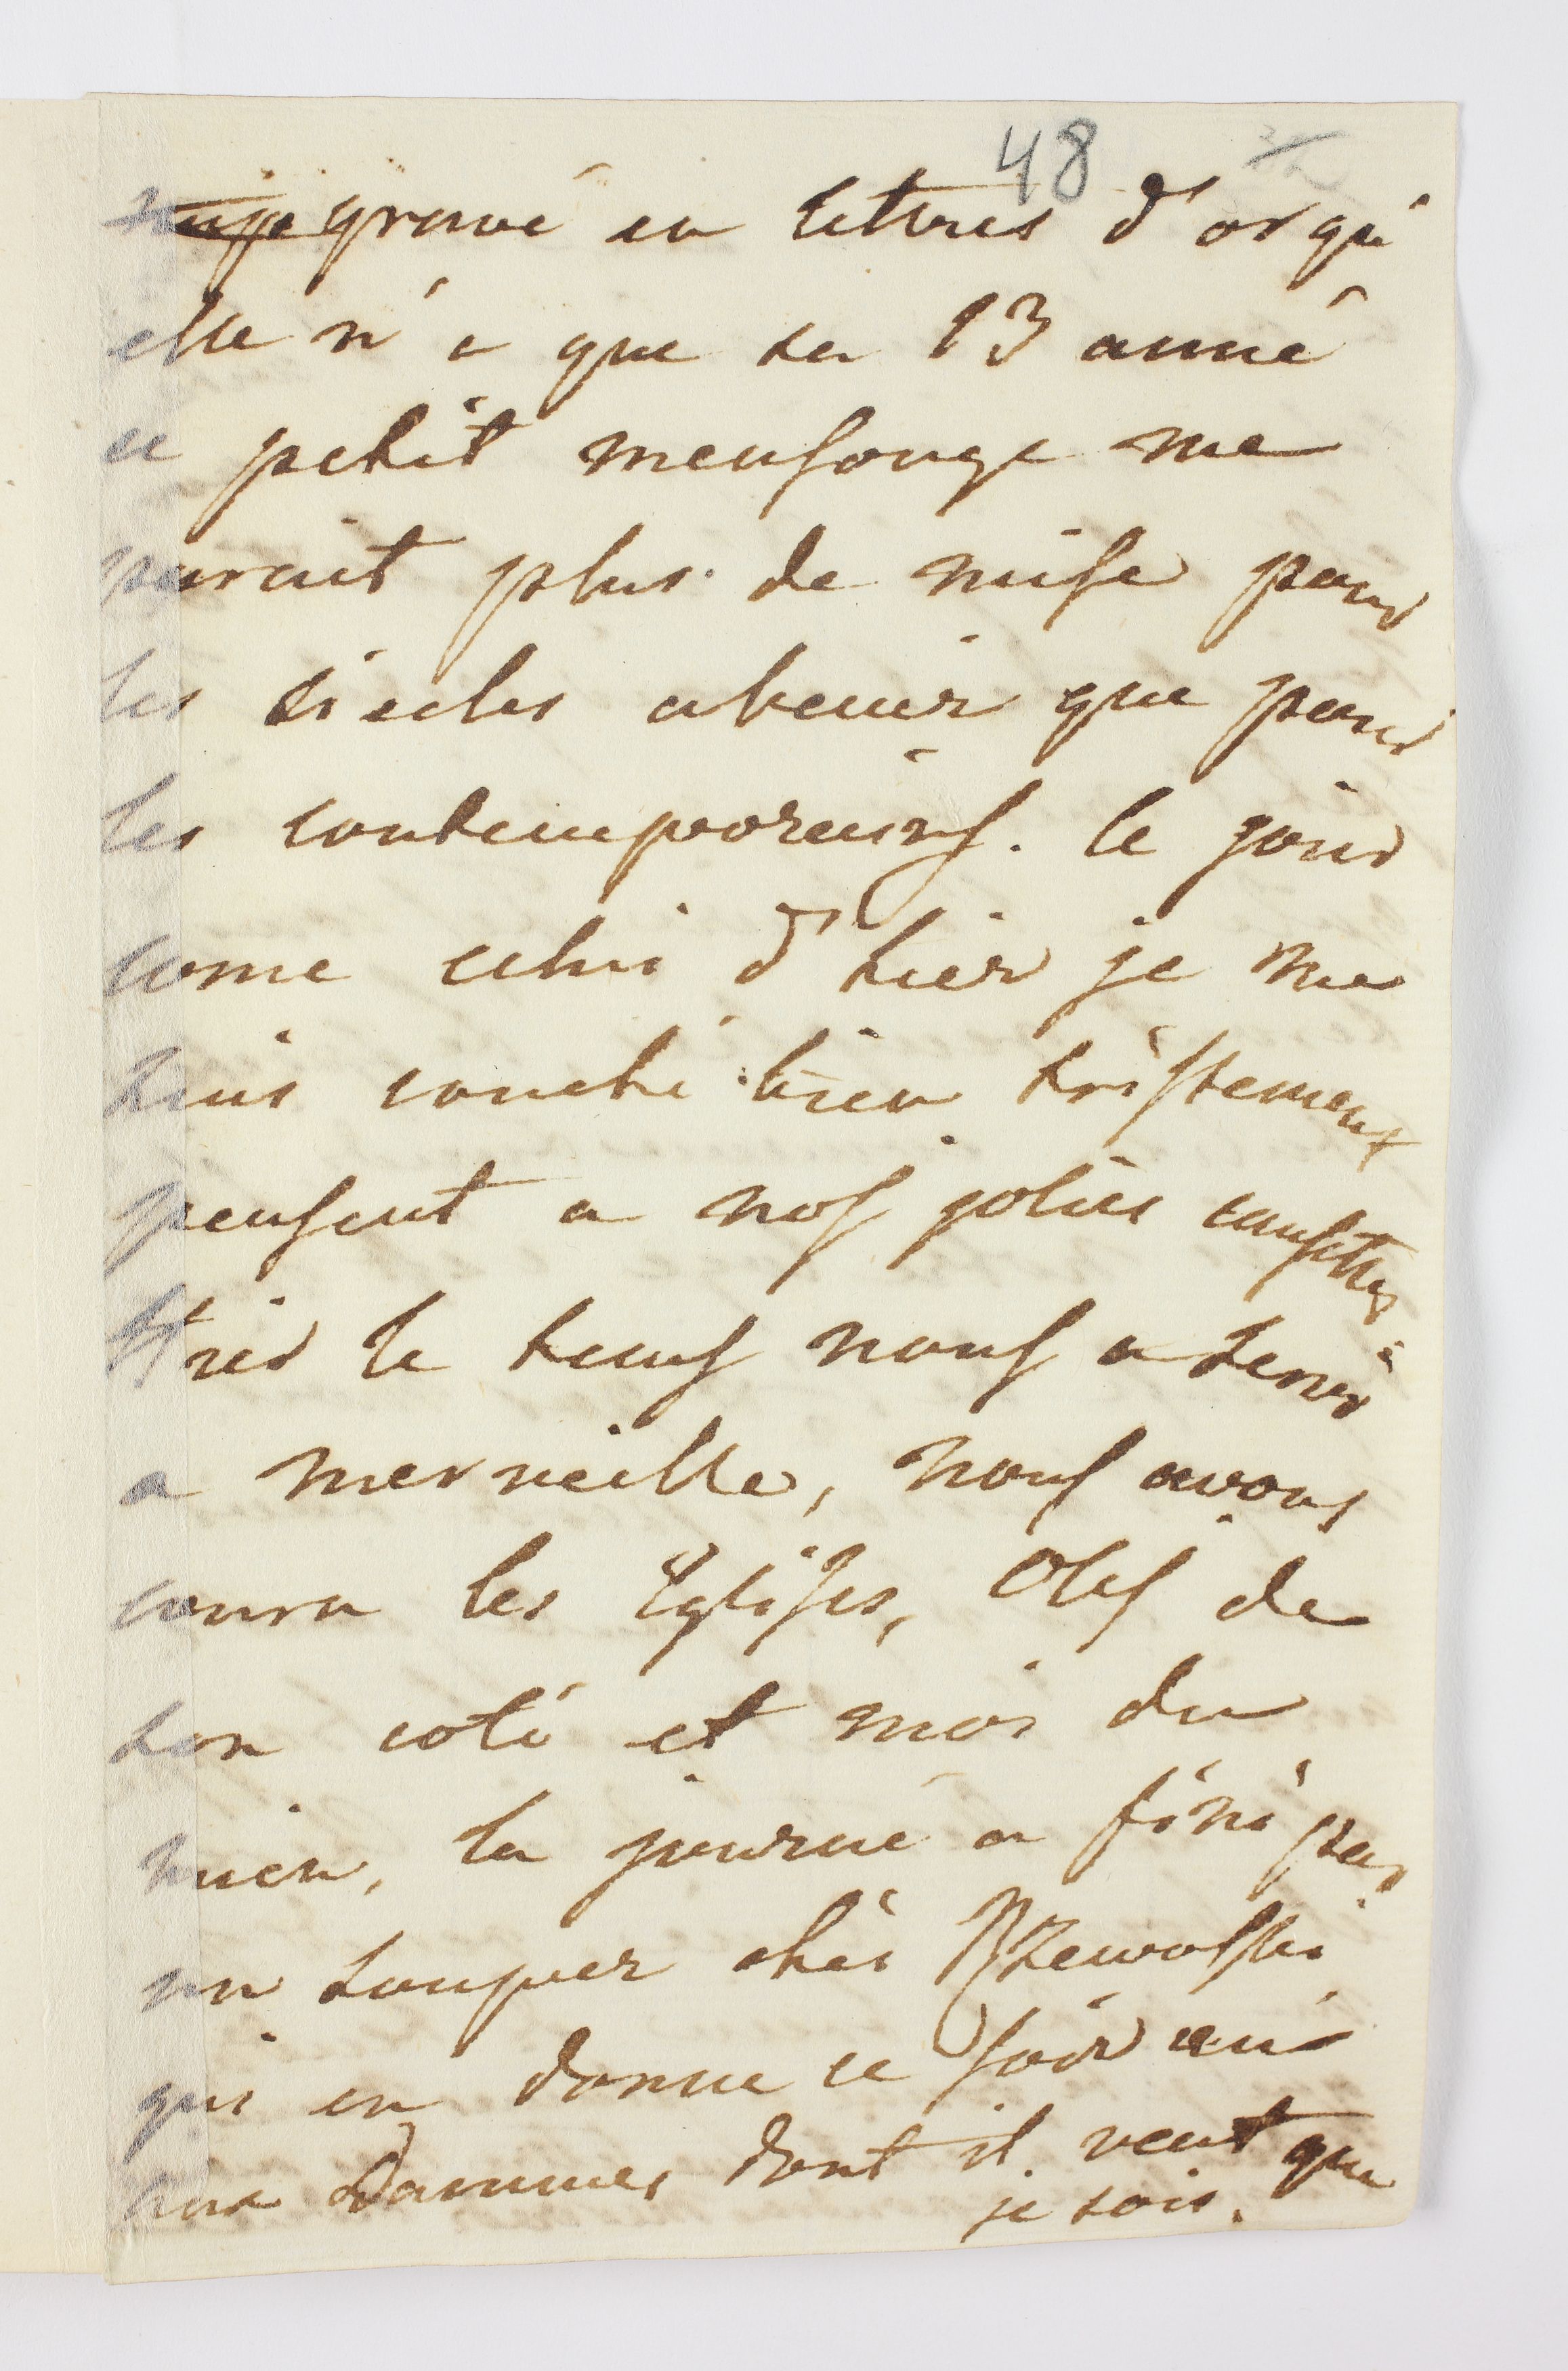 48
gravé en lettres d'or qu'
elle n'a que sa 13 anné
ce petit mensonge me
parait plus de mise pour
les siecles a venir que pour
les contemporeins. le soir
come celui d'hier je me
suis couché bien tristement
pensent a nos jolies causettes
hier le tems nous a servi
a merveille, nous avons
couru les Eglises, Oles de
son coté et moi du
mien, la journé a fini par
un souper chés Rzewosski
qui en donne ce soir un
aux Dammes dont il veut que
je sois.